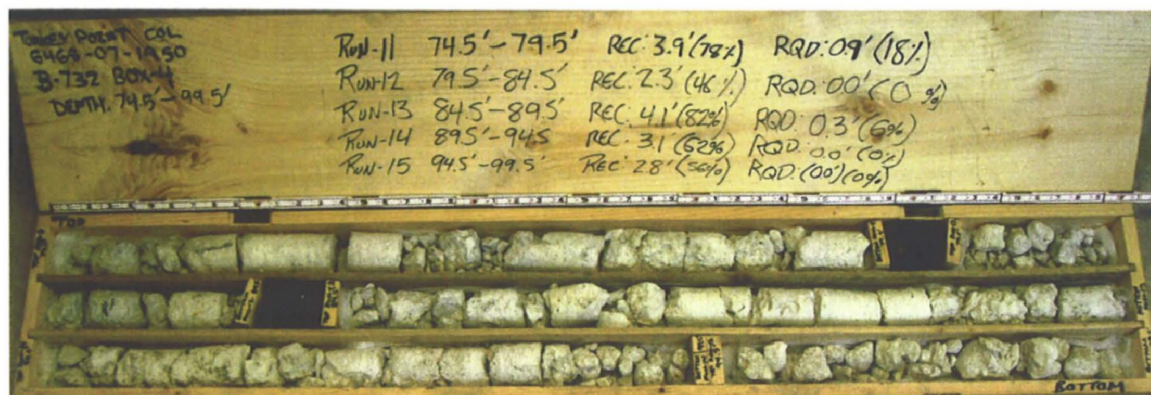 TURKEY POINT COL
6468-07-1950
B-732 BOX-4
DEPTH. 74.5'-99.5'
RUN-11 74.5'-79.5' REC: 3.9'(78%) RQD: 0.9'(18%)
RUN-12 79.5'-84.5' REC: 2.3'(46%) RQD: 0.0'(0%)
RUN-13 84.5'-89.5' REC: 4.1'(82%) RQD: 0.3'(6%)
RUN-14 89.5'-94.5 REC: 3.1'(62%) RQD: 0.0'(0%)
RUN-15 94.5'-99.5' REC: 2.8'(56%) RQD: (0.0')(0%)
TOP
BOTTOM